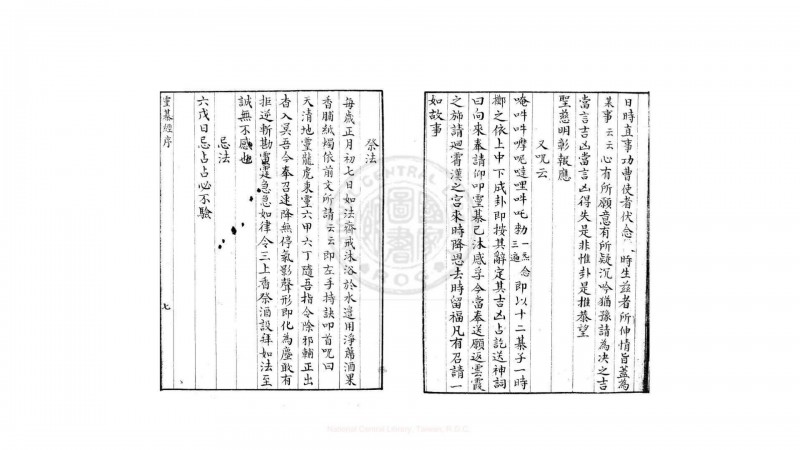 日時直事功曹使者伏念 時生茲者所伸情旨蓋為
某事云云心有所願意有所疑沉吟猶豫請為決之吉
當言吉凶當言凶得失是非惟卦是推綦望
聖慈明彰報應
又呪云
唵吽吽嚤呢噠哩吽吒勃一氣念三遍即以十二棊子一時
擲之依上中下成卦即按其辭定其吉凶占訖送神詞
曰向來奉請仰叩靈棊已沐感孚今當奉送願返雲霞
之旆請迴霄漢之宮來時降恩去時留福凡有召請一
如故事
祭法
每歲正月初七日如法齋戒沐浴於水邊用淨蓆酒果
香脯紙燭依前文所請云云即左手持訣叩首呪曰
天清地靈龍虎東靈六甲六丁隨吾指令除邪輔正出
杳入冥吾令奉召速降無停氣影聲形即化為塵敢有
拒逆斬勘雷霆急急如律令三上香祭酒設拜如法至
誠無不感也
忌法
六戊日忌占占必不驗
靈棊經序
七
National Central Library, Taiwan, R.O.C.